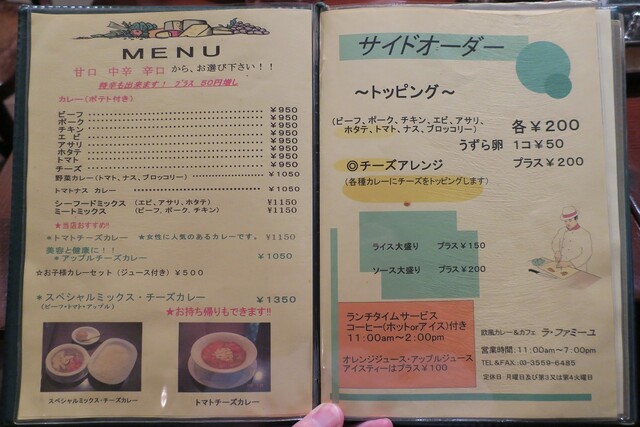 MENU
甘口 中辛 辛口 から、お選び下さい！！
特辛も出来ます！ プラス 50円増し
カレー（ポテト付き）
ビーフ ¥950
ポーク ¥950
チキン ¥950
エビ ¥950
アサリ ¥950
ホタテ ¥950
トマト ¥950
チーズ ¥950
野菜カレー（トマト、ナス、ブロッコリー） ¥1050
トマトナス カレー ¥1050
シーフードミックス （エビ、アサリ、ホタテ） ¥1150
ミートミックス （ビーフ、ポーク、チキン） ¥1150
★当店おすすめ!!
*トマトチーズカレー ★女性に人気のあるカレーです。 ¥1150
美容と健康に！！
*アップルチーズカレー ¥1050
☆お子様カレーセット（ジュース付き）¥500
*スペシャルミックス・チーズカレー ¥1350
（ビーフ・トマト・アップル）
★お持ち帰りもできます!!
スペシャルミックス・チーズカレー
トマトチーズカレー
サイドオーダー
～トッピング～
（ビーフ、ポーク、チキン、エビ、アサリ、
ホタテ、トマト、ナス、ブロッコリー） 各¥200
うずら卵 1コ¥50
◎チーズアレンジ プラス¥200
（各種カレーにチーズをトッピングします）
ライス大盛り プラス¥150
ソース大盛り プラス¥200
ランチタイムサービス
コーヒー（ホットorアイス）付き
11:00am～2:00pm
オレンジジュース・アップルジュース
アイスティーはプラス¥100
欧風カレー&カフェ ラ・ファミーユ
営業時間：11:00am～7:00pm
TEL&FAX.:03-3559-6485
定休日：月曜日及び第3又は第4火曜日